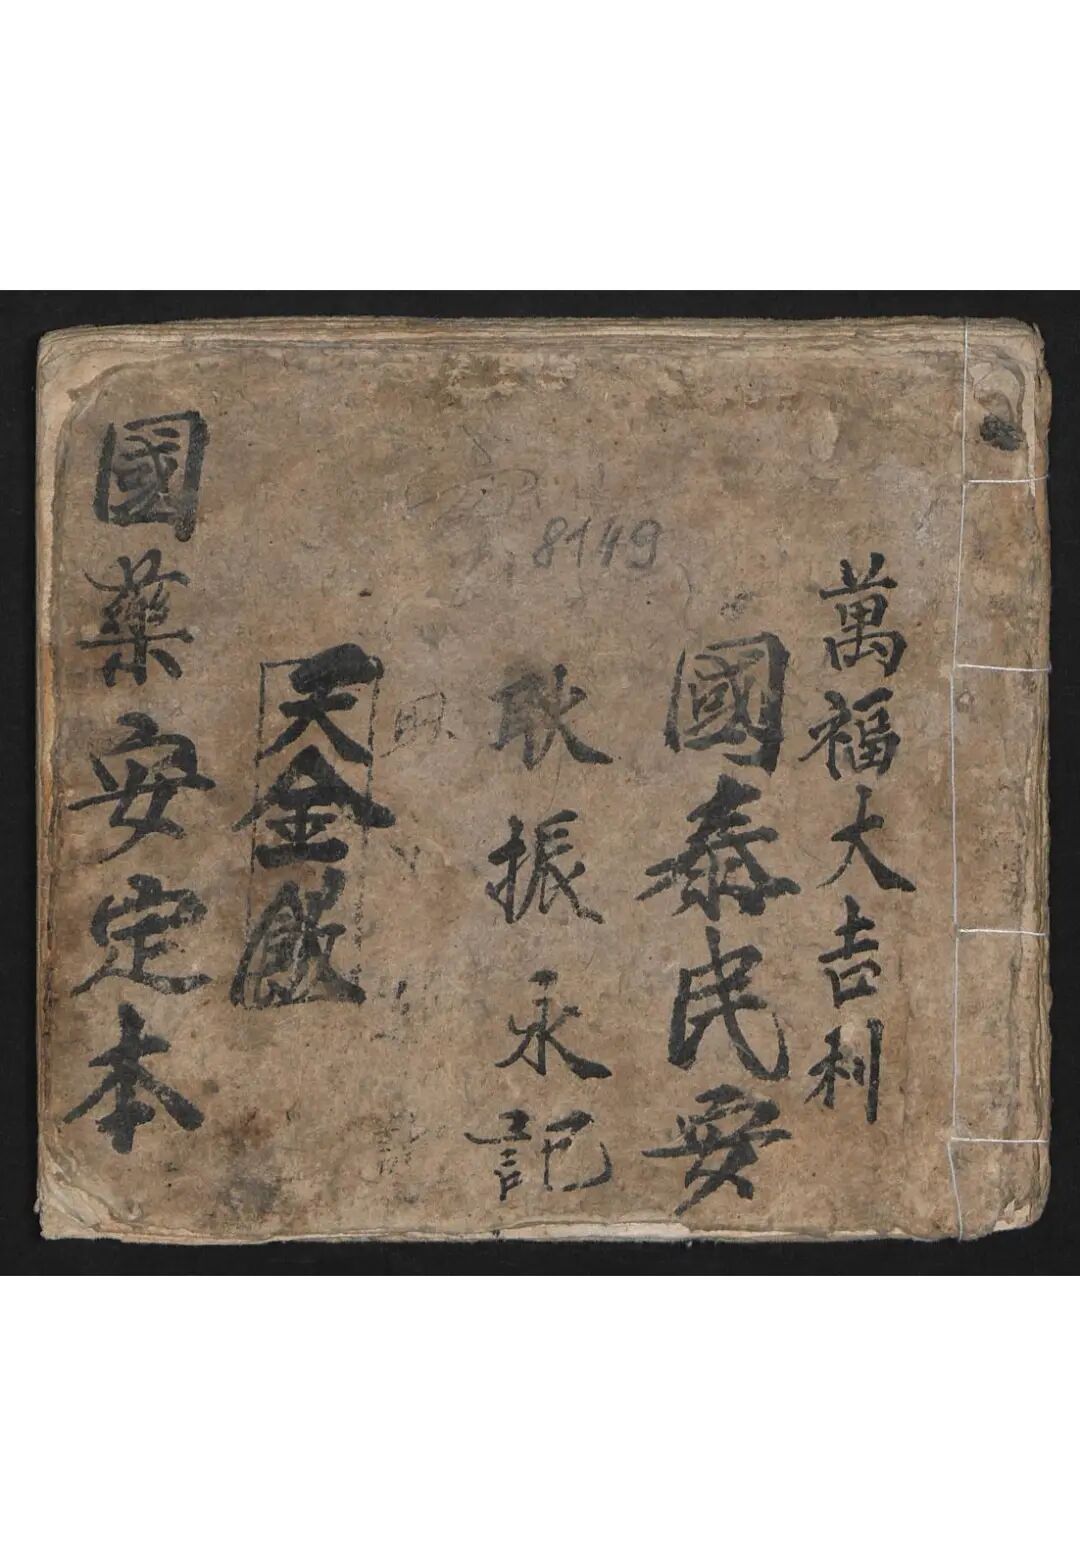 萬福大吉利
國泰民安
耿振永記
8149
天金
國藥安定本